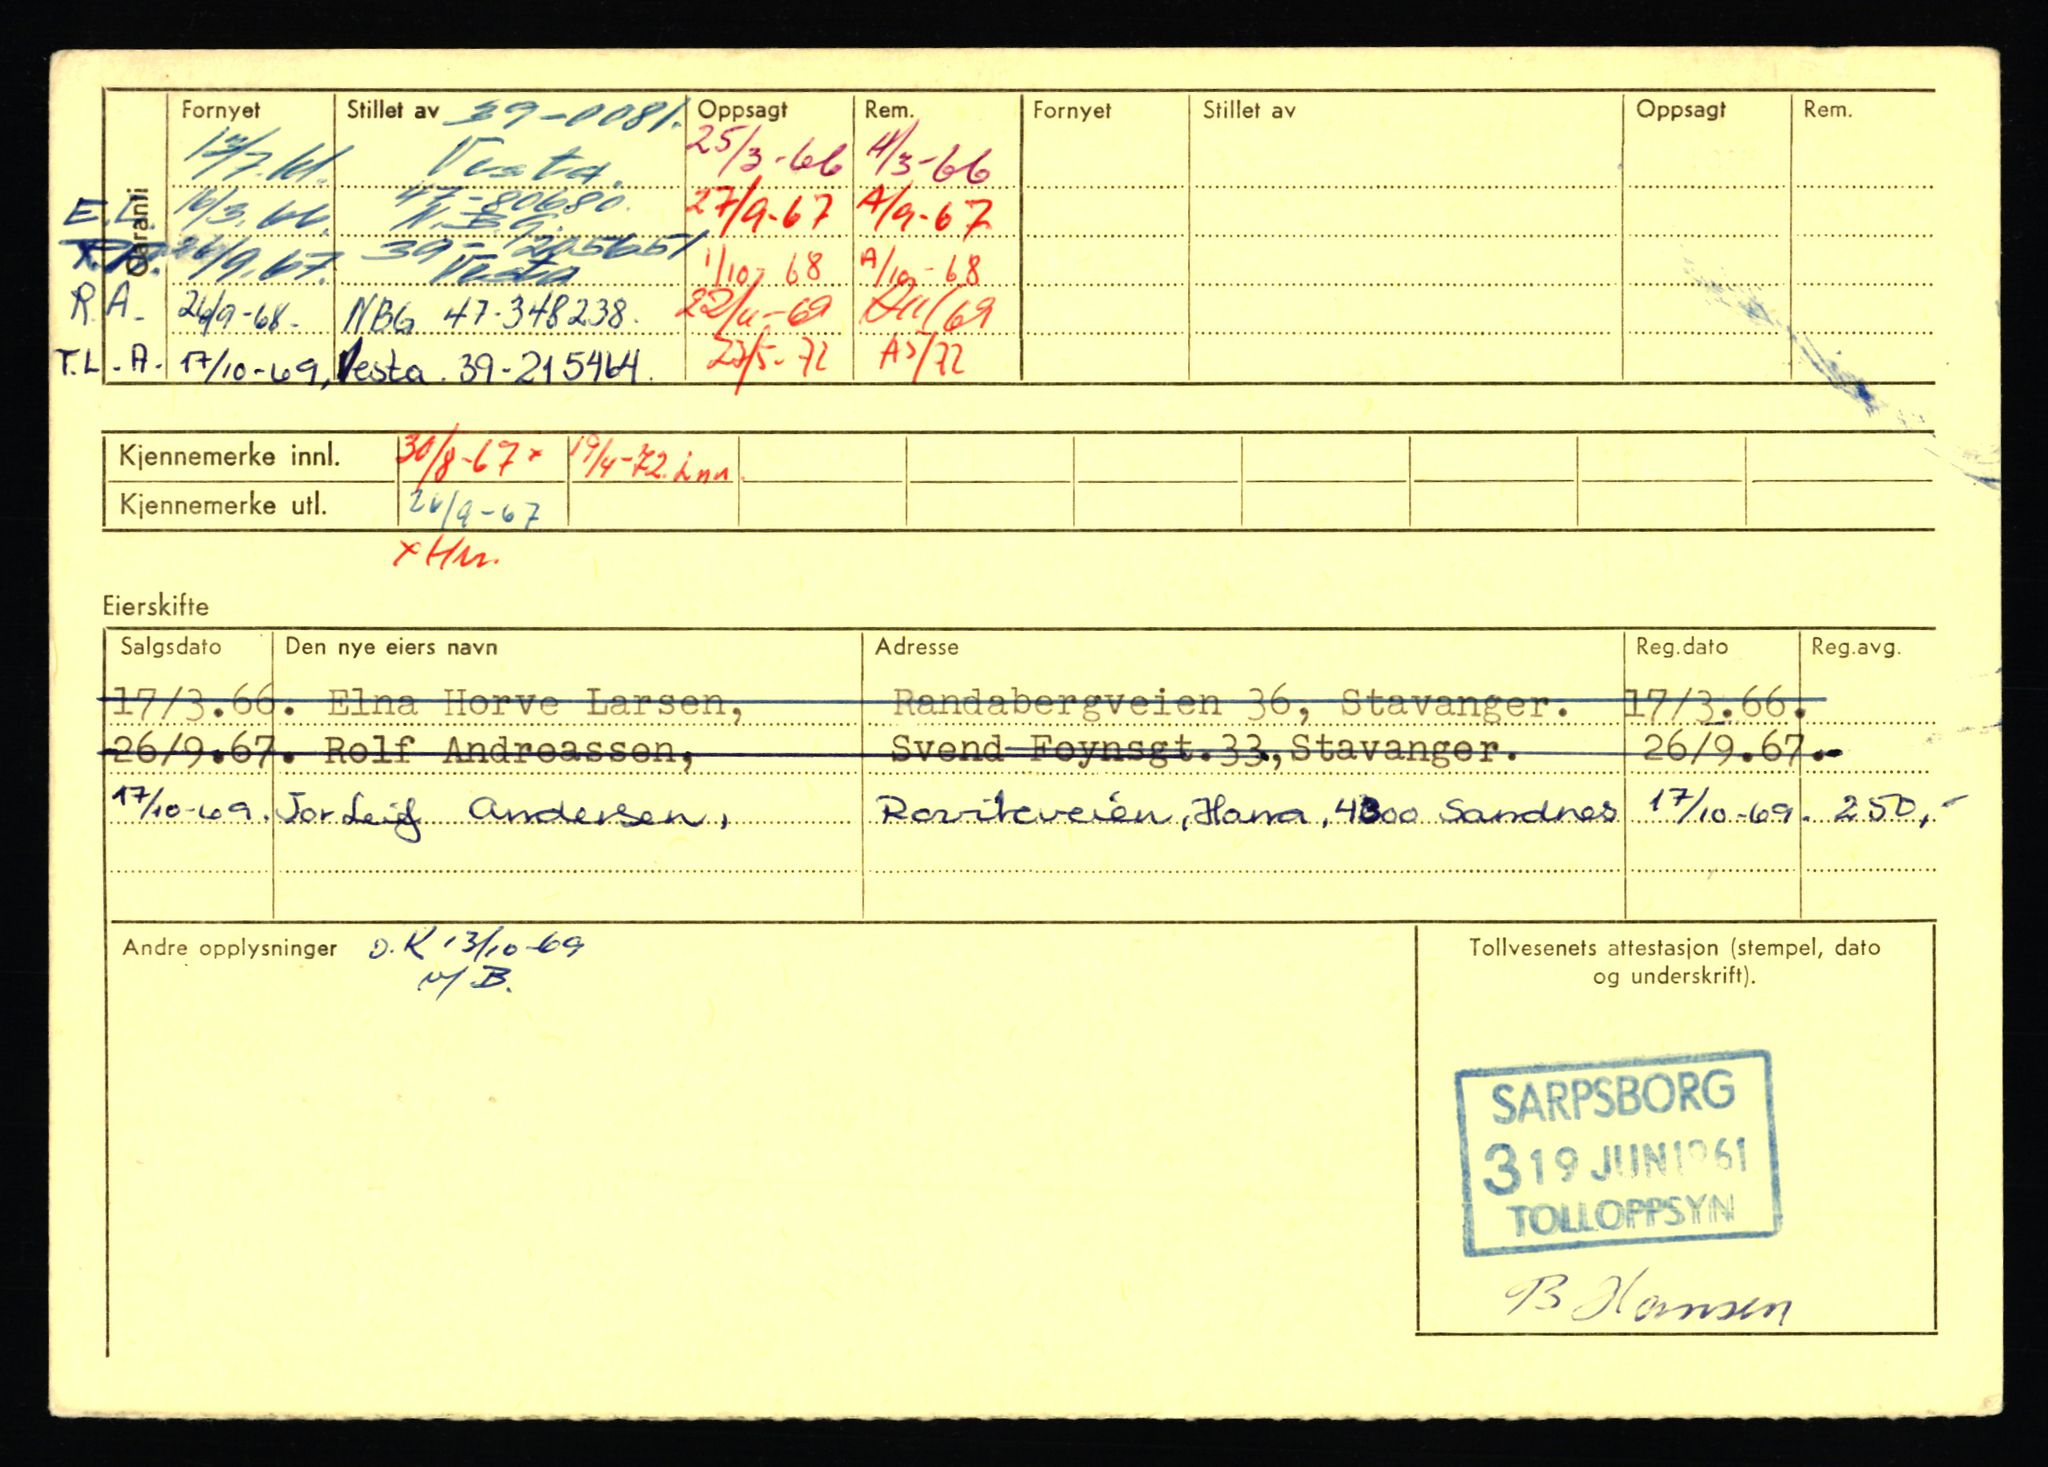 Fornyet Stillet av 39-0081. Oppsagt Rem. Fornyet Stillet av Oppsagt Rem.
Garanti
Vesta. 25/3-66 /3-66
E.L. 16/3.66. 47-80680. N.B.G. 27/9-67 A/9-67
26/9.67. 39-205651 Vesta 1/10-68 A/10-68
R.A. 26/9-68. NBG 47-348238. 22/11-69
T.L.A. 17/10-69, Vesta. 39-215464. 23/5-72
Kjennemerke innl. 30/8-67 x 19/4-72. inn.
Kjennemerke utl. 26/9-67
x Hn.
Eierskifte
Salgsdato Den nye eiers navn Adresse Reg.dato Reg.avg.
17/3.66. Elna Horve Larsen, Randabergveien 36, Stavanger. 17/3.66.
26/9.67. Rolf Andreassen, Svend Foynsgt.33, Stavanger. 26/9.67.-
17/10-69. Tor Leif Andersen, Hana, 4300 Sandnes 17/10-69. 250,-
Andre opplysninger O.K 13/10-69
Tollvesenets attestasjon (stempel, dato
og underskrift).
SARPSBORG
3 19 JUN 1961
TOLLOPPSYN
B Hansen